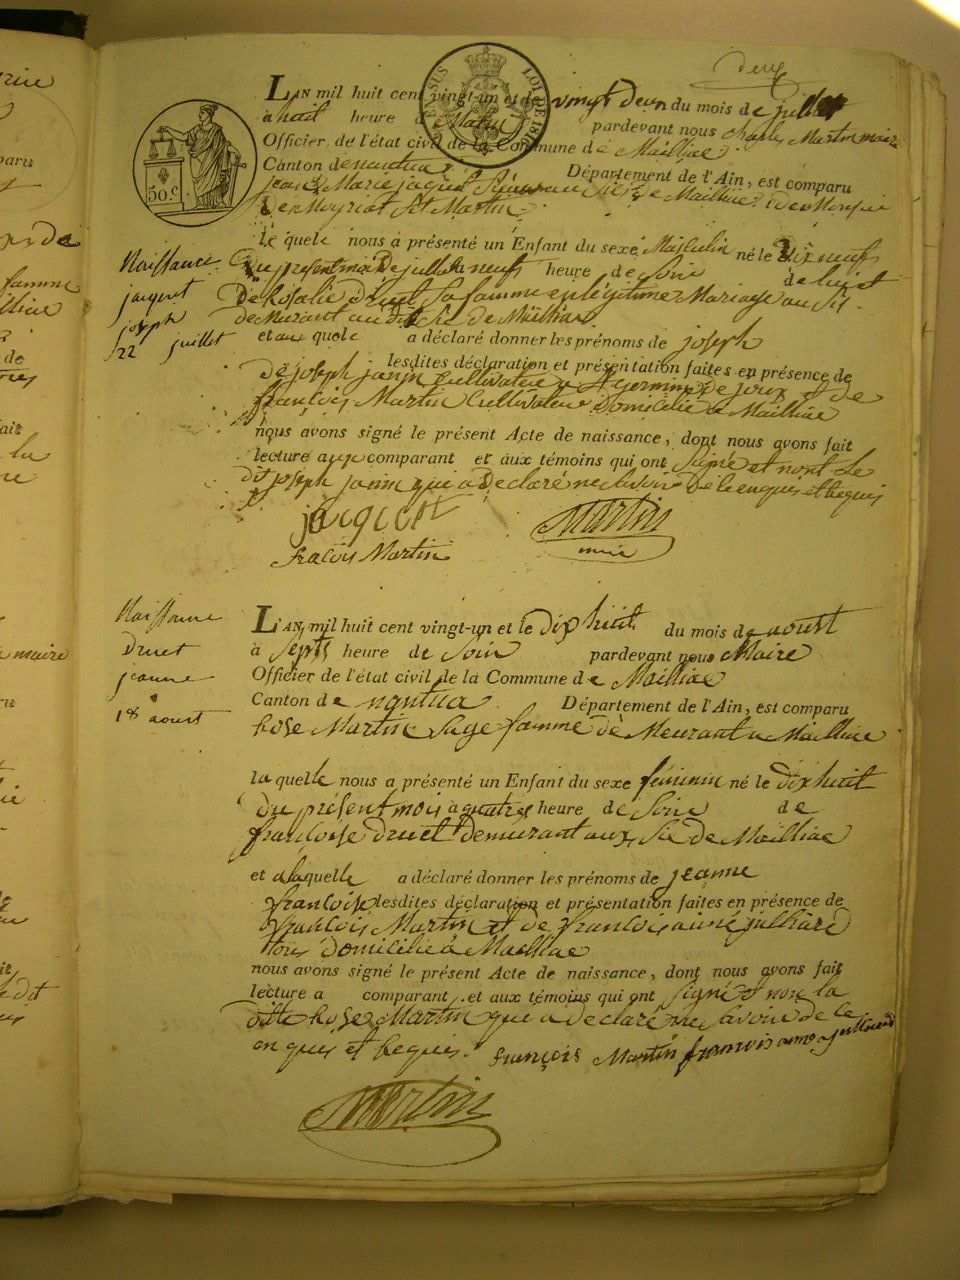 deux
CENSUS LOI DE 1816
50 C.
L'AN mil huit cent vingt-un et le vingt deux du mois de juillet
à huit heure de Matin pardevant nous Charles Martin maire
Officier de l'état civil de la Commune de Mailliac
Canton de nantua Département de l'Ain, est comparu
jean Marie jaquet de Mailliac
St Martin
Naissance
jacquet
joseph
22 juillet
le quel nous a présenté un Enfant du sexe Masculin né le Dix neuf
Du present mois De juillet a neuf heure de Soir de lui et
De Rosalie Druet Sa famme en légitime Mariage au Sis
de Murant au dit Sie de Mailliac
et au quele a déclaré donner les prénoms de joseph
lesdites déclaration et présentation faites en présence de
De joseph janin Cultivateur a St germin de joux et de
françois Martin Cultivateur Domicilié a Mailliac
nous avons signé le présent Acte de naissance, dont nous avons fait
lecture aux comparant et aux témoins qui ont Signé et nont Le
dit joseph janin que a Declaré ne Savoir De le enquis et bequis
jacquet Martin
maire
fracois Martin
Naissanse
Druet
jeanne
18 aoust
L'AN mil huit cent vingt-un et le Dix huit du mois de aoust
à Septs heure de Soir pardevant nous Maire
Officier de l'état civil de la Commune de Mailliac
Canton de nantua Département de l'Ain, est comparu
Rose Martin Sage famme de Meurant a Mailliac
la quelle nous a présenté un Enfant du sexe féminin né le Dix huit
Du présent mois a quatres heure de Soire de
françoise druet Demurant aux Sie de Mailliac
et a laquelle a déclaré donner les prénoms de jeanne
françoise lesdites déclaration et présentation faites en présence de
françois Martin et de françois aimé julliard
tous domicilié a Mailliac
nous avons signé le présent Acte de naissance, dont nous avons fait
lecture a comparant et aux témoins qui ont Signé et non la
ditte Rose Martin que a Declaré ne Savoir de le
en ques et beques. françois Martin françois aimé julliard
Martin